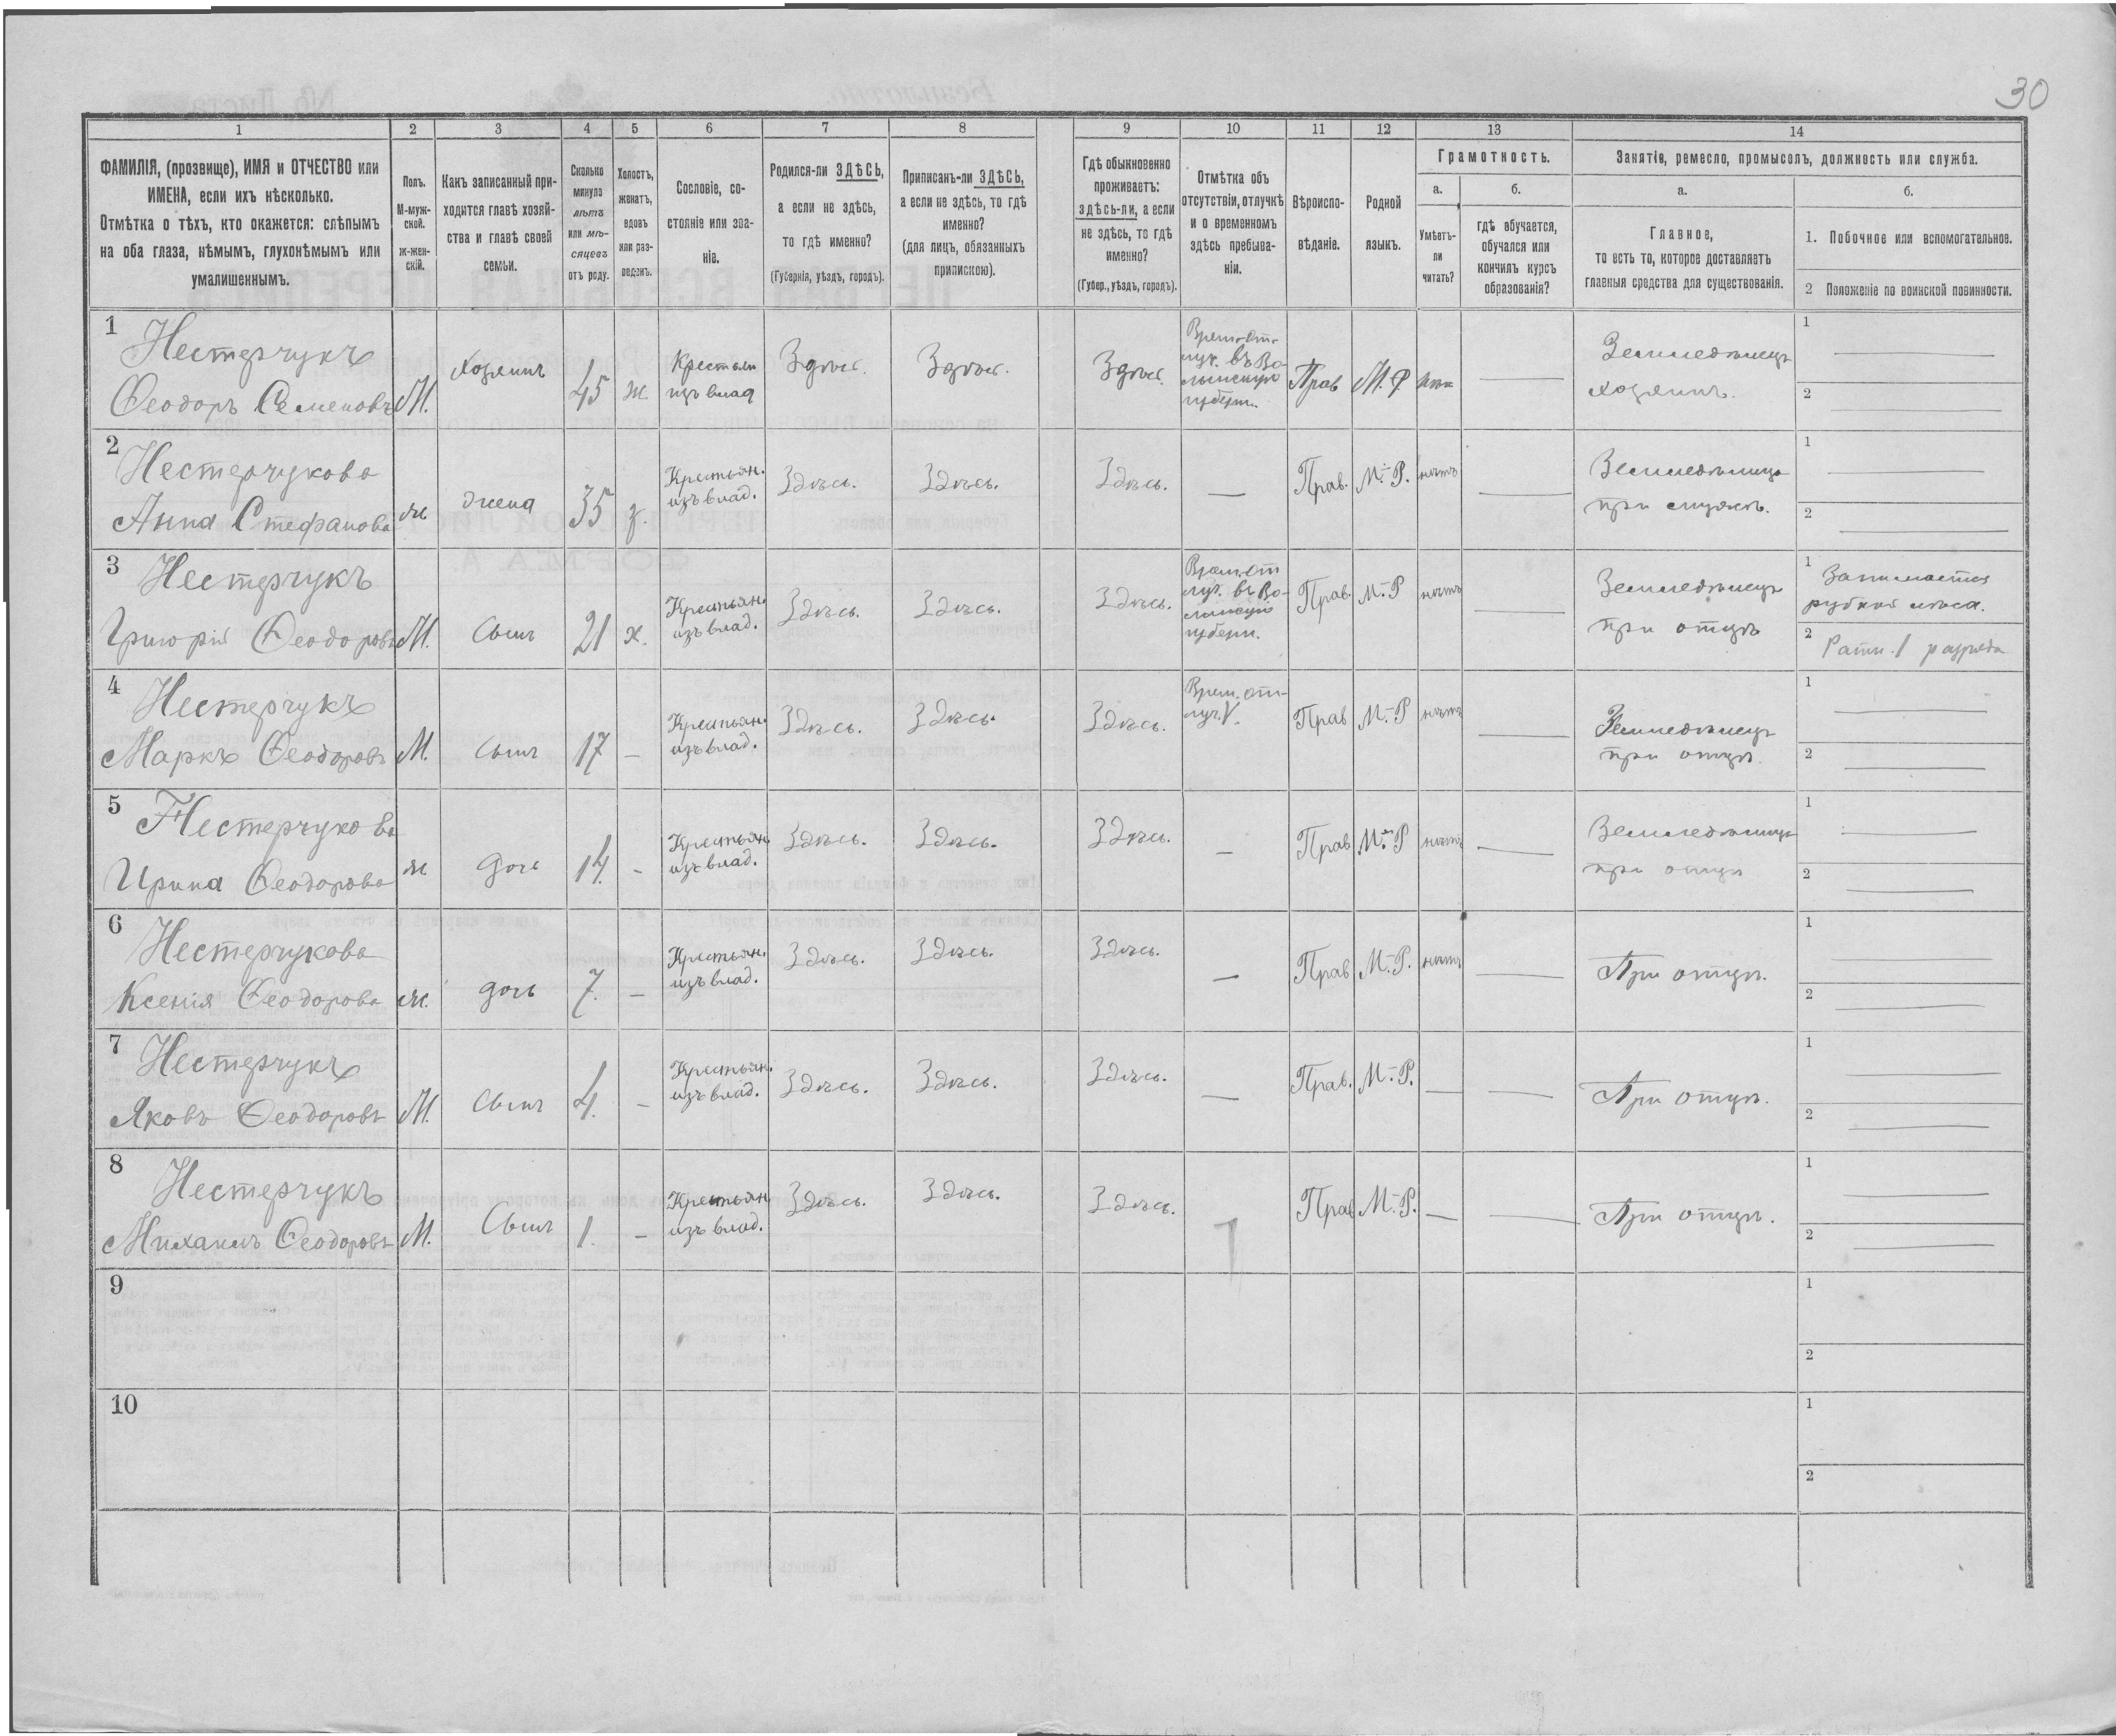 30
1 2 3 4 5 6 7 8 9 10 11 12 13 14
ФАМИЛІЯ, (прозвище), ИМЯ и ОТЧЕСТВО или
ИМЕНА, если ихъ нѣсколько.
Отмѣтка о тѣхъ, кто окажется: слѣпымъ
на оба глаза, нѣмымъ, глухонѣмымъ или
умалишеннымъ.
Полъ.
М-муж-
ской.
ж-жен-
скій.
Какъ записанный при-
ходится главѣ хозяй-
ства и главѣ своей
семьи.
Сколько
минуло
лѣтъ
или мѣ-
сяцевъ
отъ роду.
Холостъ,
женатъ,
вдовъ
или раз-
веденъ.
Сословіе, со-
стояніе или зва-
ніе.
Родился-ли ЗДѢСЬ,
а если не здѣсь,
то гдѣ именно?
(Губернія, уѣздъ, городъ).
Приписанъ-ли ЗДѢСЬ,
а если не здѣсь, то гдѣ
именно?
(для лицъ, обязанныхъ
припискою).
Гдѣ обыкновенно
проживаетъ:
здѣсь-ли, а если
не здѣсь, то гдѣ
именно?
(Губер., уѣздъ, городъ).
Отмѣтка объ
отсутствіи, отлучкѣ
и о временномъ
здѣсь пребыва-
ніи.
Вѣроиспо-
вѣданіе.
Родной
языкъ.
Грамотность.
а.
Умѣетъ-
ли
читать?
б.
гдѣ обучается,
обучался или
кончилъ курсъ
образованія?
Занятіе, ремесло, промыселъ, должность или служба.
а.
Главное,
то есть то, которое доставляетъ
главныя средства для существованія.
б.
1. Побочное или вспомогательное.
2 Положеніе по воинской повинности.
1
Нестерчукъ
Ѳеодоръ Семеновъ
М.
хозяинъ
45
ж.
Крестьян
изъ влад
Здѣсь.
Здѣсь.
Здѣсь.
Врем. от-
луч. въ Во-
лынскую
губерн.
Прав
М. Р.
нѣт
Земледѣлецъ
хозяинъ.
1
2
2
Нестерчукова
Анна Стефанова
ж
жена
35
з.
Крестьян.
изъ влад.
Здѣсь.
Здѣсь.
Здѣсь.
—
Прав.
М.-Р.
нѣтъ
Земледѣлица
при мужѣ.
1
2
3
Нестерчукъ
Григорій Ѳеодоровъ
М.
Сынъ
21
х.
Крестьян.
изъ влад.
Здѣсь.
Здѣсь.
Здѣсь.
Врем. от
луч. въ Во-
лынскую
губерн.
Прав.
М.-Р
нѣтъ
Земледѣлецъ
при отцѣ
1
Занимается
рубкой лѣса.
2
Ратн. 1 разряда
4
Нестерчукъ
Маркъ Ѳеодоровъ
М.
Сынъ
17
—
Крестьян.
изъ влад.
Здѣсь.
Здѣсь.
Здѣсь.
Врем. от-
луч. V.
Прав
М.-Р
нѣтъ
Земледѣлецъ
при отцѣ.
1
2
5
Нестерчукова
Ирина Ѳеодорова
ж
дочь
14.
-
Крестьян.
изъ влад.
Здѣсь.
Здѣсь.
Здѣсь.
—
Прав
М.-Р
нѣтъ
Земледѣлица
при отцѣ
1
2
6
Нестерчукова
Ксенія Ѳеодорова
ж.
дочь
7.
—
Крестьян.
изъ влад.
Здѣсь.
Здѣсь.
Здѣсь.
—
Прав
М.-Р.
нѣтъ
При отцѣ.
1
2
7
Нестерчукъ
Яковъ Ѳеодоровъ
М.
Сынъ
4.
-
Крестьян.
изъ влад.
Здѣсь.
Здѣсь.
Здѣсь.
—
Прав.
М.-Р.
—
При отцѣ.
1
2
8
Нестерчукъ
Михаилъ Ѳеодоровъ
М.
Сынъ
1.
-
Крестьян
изъ влад.
Здѣсь.
Здѣсь.
Здѣсь.
Прав
М.-Р.
—
При отцѣ.
1
2
9
1
2
10
1
2